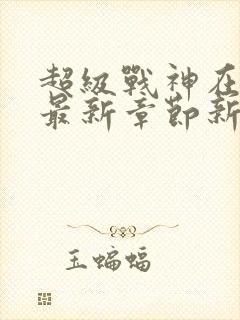 超級戰神在
最新章節新
玉蝙蝠